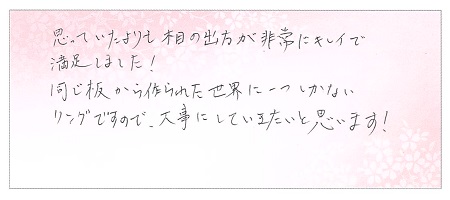 思っていたよりも木目の出方が非常にキレイで
満足しました!
同じ板から作られた世界に一つしかない
リングですので、大事にしていきたいと思います!